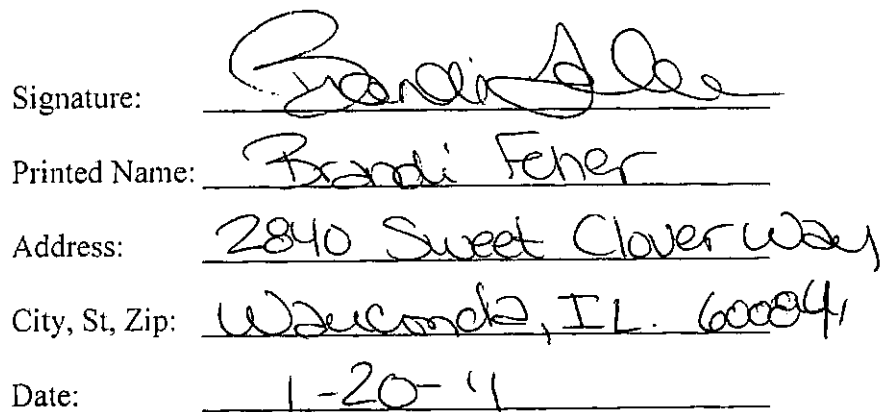 Signature: Brandi Feher
Printed Name: Brandi Feher
Address: 2840 Sweet Clover Way
City, St, Zip: Wauconda, IL. 60084
Date: 1-20-11